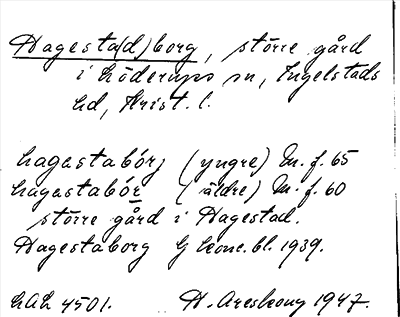 Hagesta(d)borg, större gård
i Löderups sn, Ingelstads
hd, Krist. l.
hagastabórj (yngre) M. f. 65
hagastabór (äldre) M. f. 60
större gård i Hagestad.
Hagestaborg G kone.bl. 1939.
LAL 4501. H. Areskoug 1947.